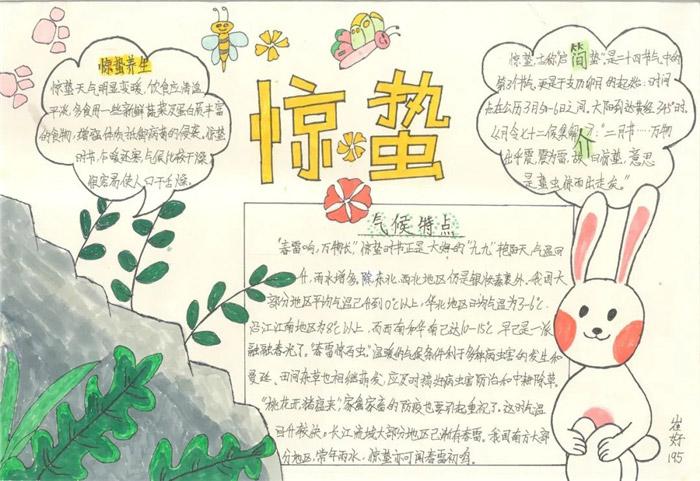 惊蛰
惊蛰养生
惊蛰天气明显变暖,饮食应清温
平淡,多食用一些新鲜蔬菜及蛋白质丰富
的食物,增强体质抵御病菌的侵袭。惊蛰
时节,乍暖还寒,气候比较干燥,
很容易使人口干舌燥。
简介
惊蛰,古称“启蛰”,是二十四节气中的
第3个节气,更是干支历卯月的起始;时间
点在公历3月5-6日之间,太阳到达黄经345°时。
《月令七十二候集解》:“二月节……万物
出乎震,震为雷,故曰惊蛰,意思
是蛰虫惊而出走矣。”
气候特点
“春雷响,万物长”,惊蛰时节正是大好的“九九”艳阳天,气温回
升,雨水增多。除东北、西北地区仍是银妆素裹外,我国大
部分地区平均气温已升到0℃以上,华北地区日均气温为3-6℃,
沿江江南地区为8℃以上,而西南和华南已达10-15℃,早已是一派
融融春光了。“春雷惊百虫”,温暖的气候条件利于多种病虫害的发生和
蔓延,田间杂草也相继萌发,应及时搞好病虫害防治和中耕除草。
“桃花开,猪瘟来”,家禽家畜的防疫也要引起重视了。这时气温
回升较快。长江流域大部分地区已渐有春雷。我国南方大部
分地区,常年雨水、惊蛰亦可闻春雷初鸣。
崔
好
195